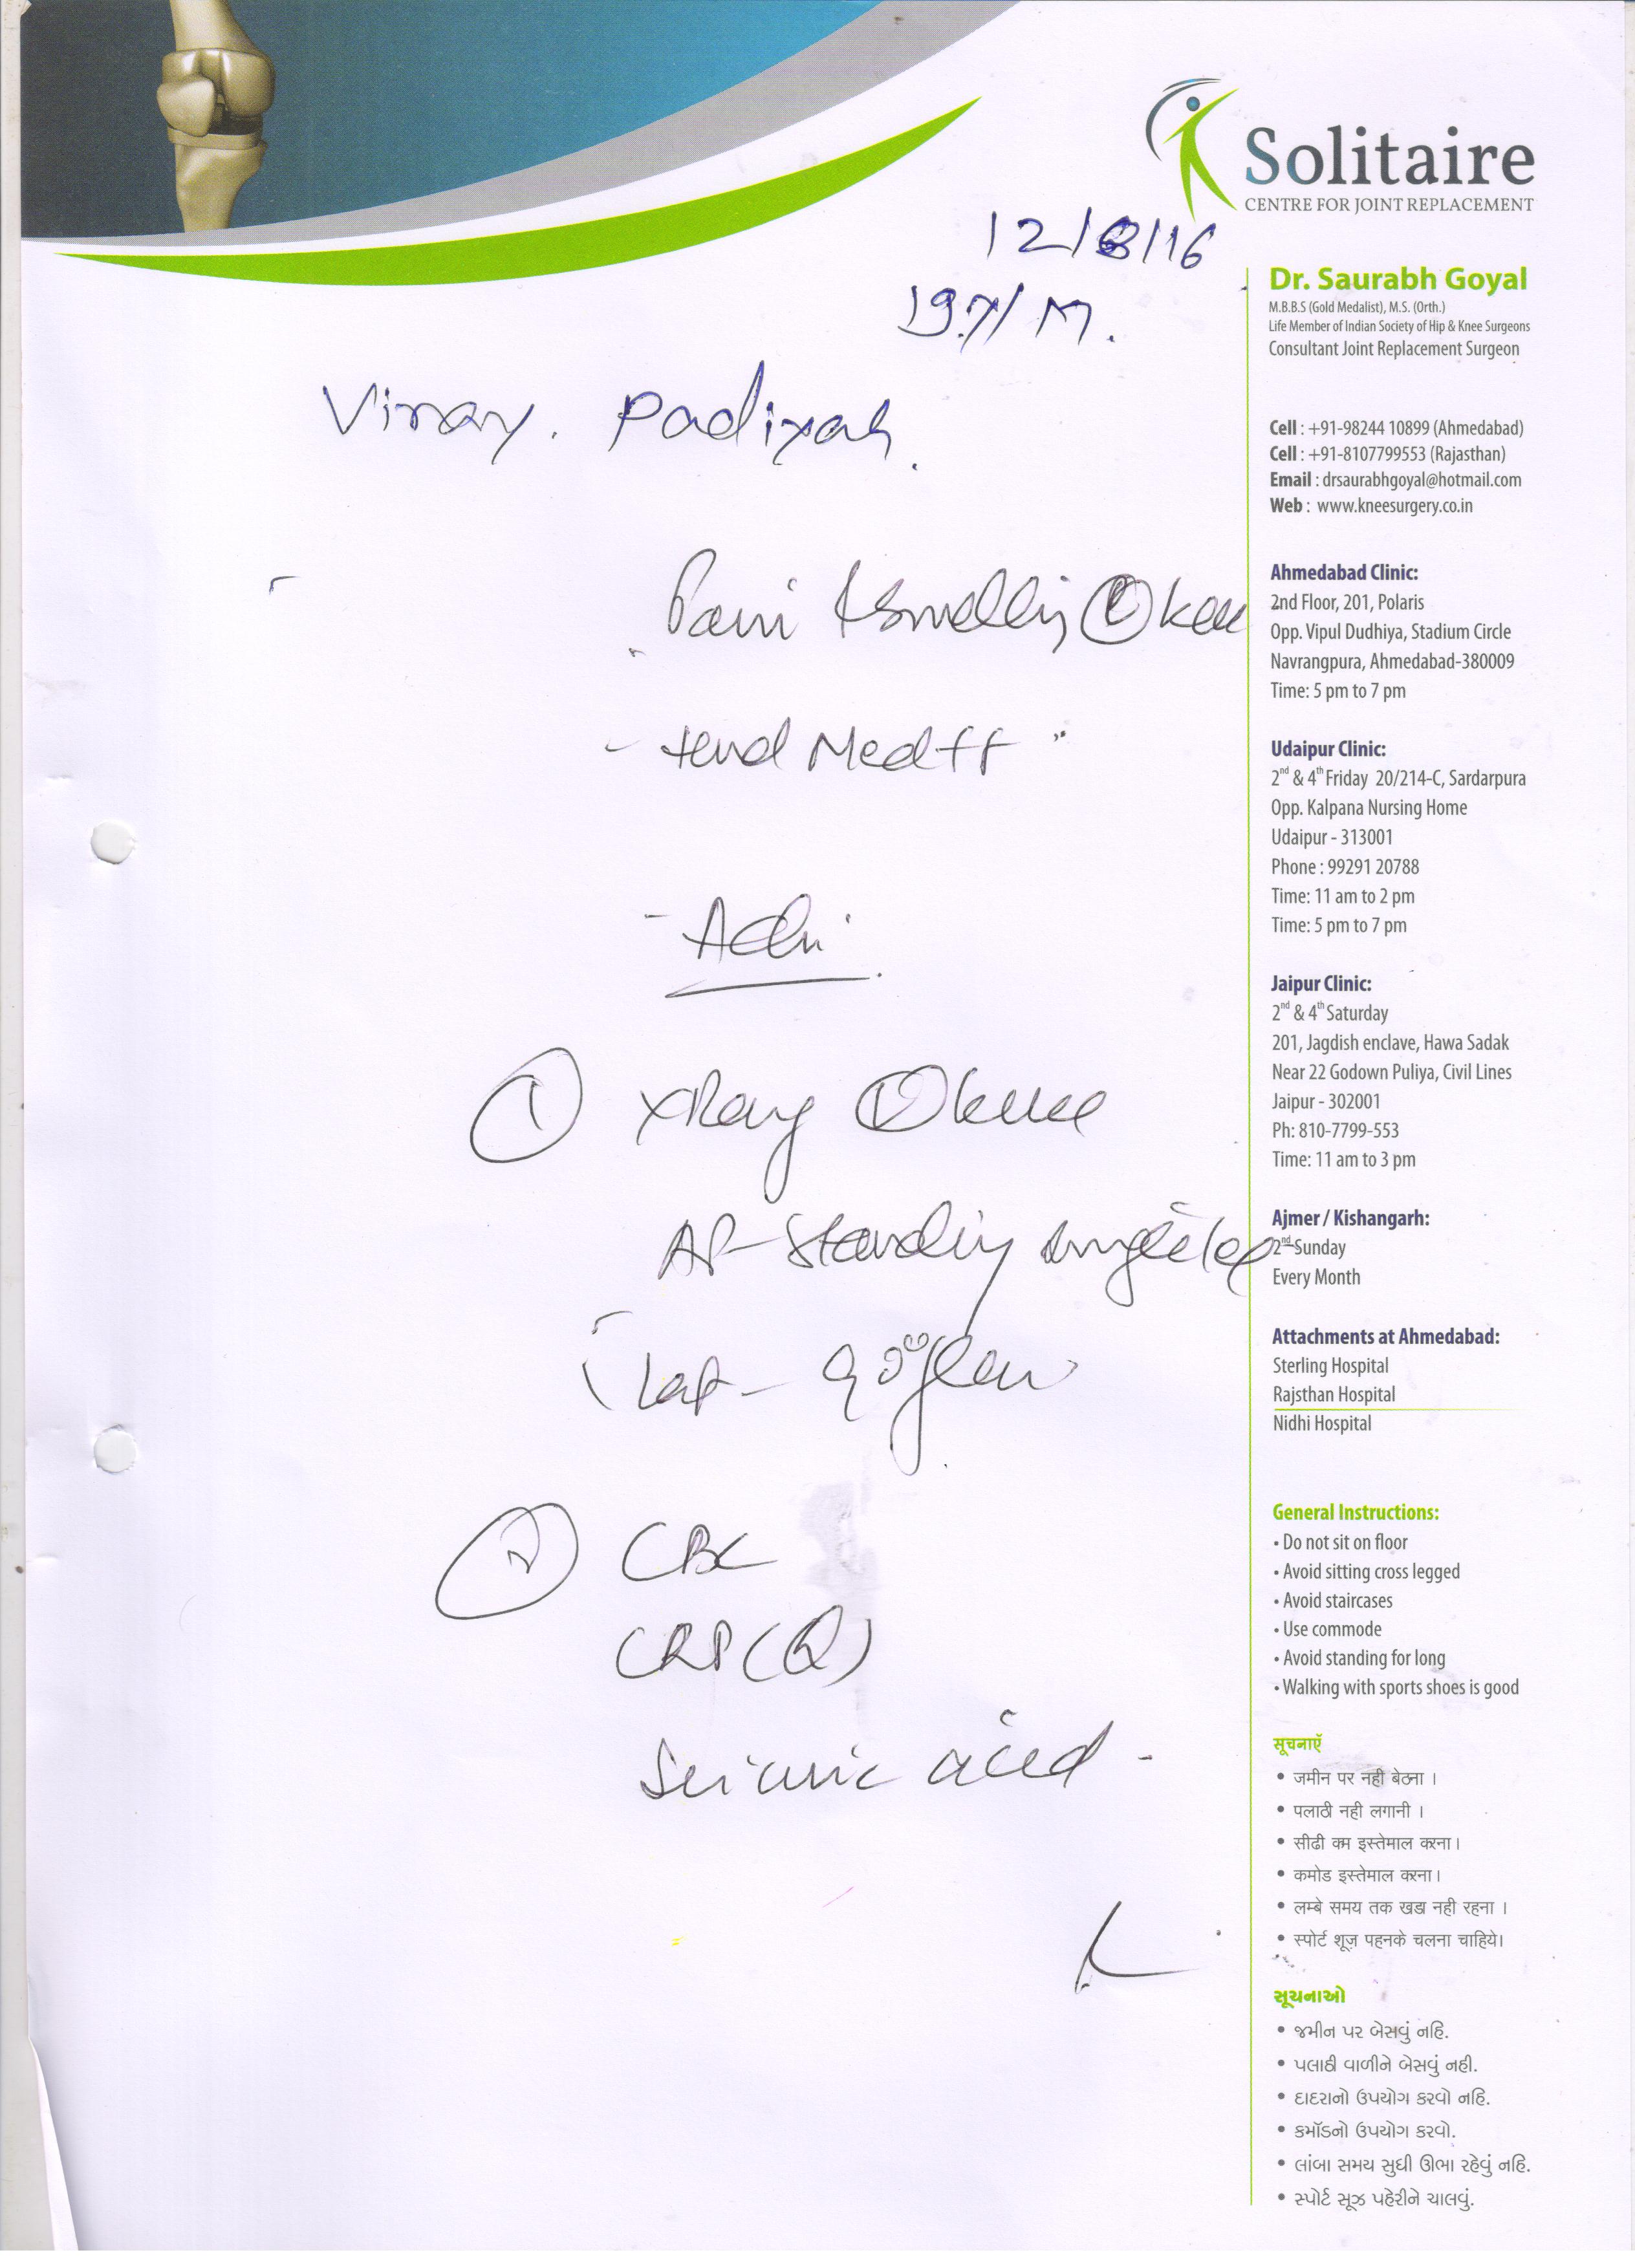 Solitaire
CENTRE FOR JOINT REPLACEMENT
12/8/16
19y/M.
Vinay. Padiyah.
Dr. Saurabh Goyal
M.B.B.S (Gold Medalist), M.S. (Orth.)
Life Member of Indian Society of Hip & Knee Surgeons
Consultant Joint Replacement Surgeon
Cell : +91-98244 10899 (Ahmedabad)
Cell : +91-8107799553 (Rajasthan)
Email : drsaurabhgoyal@hotmail.com
Web : www.kneesurgery.co.in
Pain & Swelling knee
- tend Med
- Adv.
① XRay knee
AP- Standing single leg
Lat -
② CBC
CRP (Q)
uric acid -
Ahmedabad Clinic:
2nd Floor, 201, Polaris
Opp. Vipul Dudhiya, Stadium Circle
Navrangpura, Ahmedabad-380009
Time: 5 pm to 7 pm
Udaipur Clinic:
2nd & 4th Friday 20/214-C, Sardarpura
Opp. Kalpana Nursing Home
Udaipur - 313001
Phone : 99291 20788
Time: 11 am to 2 pm
Time: 5 pm to 7 pm
Jaipur Clinic:
2nd & 4th Saturday
201, Jagdish enclave, Hawa Sadak
Near 22 Godown Puliya, Civil Lines
Jaipur - 302001
Ph: 810-7799-553
Time: 11 am to 3 pm
Ajmer / Kishangarh:
2nd Sunday
Every Month
Attachments at Ahmedabad:
Sterling Hospital
Rajsthan Hospital
Nidhi Hospital
General Instructions:
• Do not sit on floor
• Avoid sitting cross legged
• Avoid staircases
• Use commode
• Avoid standing for long
• Walking with sports shoes is good
सूचनाएँ
• जमीन पर नही बेठना ।
• पलाठी नही लगानी ।
• सीढी कम इस्तेमाल करना।
• कमोड इस्तेमाल करना।
• लम्बे समय तक खडा नही रहना ।
• स्पोर्ट शूज़ पहनके चलना चाहिये।
સૂચનાઓ
• જમીન પર બેસવું નહિ.
• પલાઠી વાળીને બેસવું નહી.
• દાદરાનો ઉપયોગ કરવો નહિ.
• કમૉડનો ઉપયોગ કરવો.
• લાંબા સમય સુધી ઊભા રહેવું નહિ.
• સ્પોર્ટ સૂઝ પહેરીને ચાલવું.